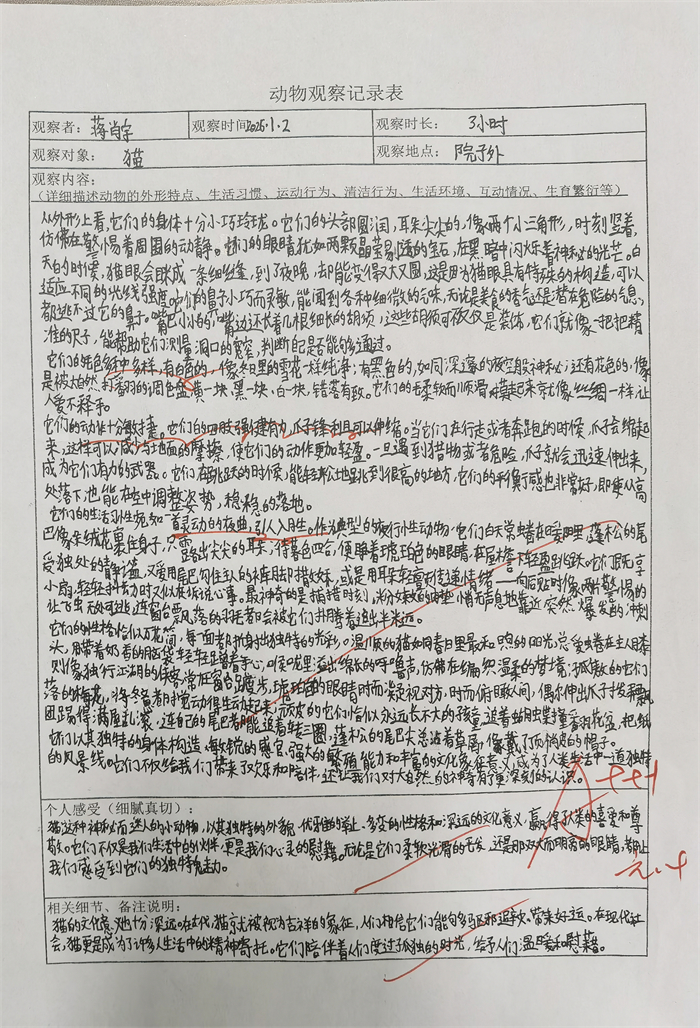 动物观察记录表
观察者： 蒋肖宇 观察时间2025.1.2 观察时长： 3小时
观察对象： 猫 观察地点： 院子外
观察内容：
（详细描述动物的外形特点、生活习惯、运动行为、清洁行为、生活环境、互动情况、生育繁衍等）
从外形上看，它们的身体十分小巧玲珑。它们的头部圆润，耳朵尖尖的，像两个小三角形，时刻竖着，
仿佛在警惕着周围的动静。它们的眼睛犹如两颗晶莹剔透的宝石，在黑暗中闪烁着神秘的光芒。白
天的时候，猫眼会眯成一条细丝缝，到了夜晚，却能变得又大又圆，这是因为猫眼具有特殊的构造，可以
适应不同的光线强度。它们的鼻子小巧而灵敏，能闻到各种细微的气味，无论是美食的香气还是潜在危险的气息，
都逃不过它的鼻子。嘴巴小小的，嘴边还长着几根细长的胡须，这些胡须可不仅仅是装饰，它们就像一把把精
准的尺子，能帮助它们测量洞口的宽窄，判断自己是否能够通过。
它们的毛色多种多样，有白色的，像冬日里的雪花一样纯净；有黑色的，如同深邃的夜空般神秘；还有花色的，像
是被大自然打翻的调色盘，黄一块、黑一块、白一块，错落有致。它们的毛柔软而顺滑，摸起来就像丝绸一样，让
人爱不释手。
它们的动作十分敏捷。它们的四肢强健有力，爪子锋利且可以伸缩。当它们在行走或者奔跑的时候，爪子会缩起
来，这样可以减少与地面的摩擦，使它们的动作更加轻盈。一旦遇到猎物或者危险，爪子就会迅速伸出来，
成为它们有力的武器。它们在跳跃的时候，能轻松地跳到很高的地方，它们的平衡感也非常好，即使从高
处落下，也能在空中调整姿势，稳稳的落地。
它们的生活习性宛如一首灵动的夜曲，引人入胜。作为典型的夜行性动物，它们白天常蜷在暖阳里，蓬松的尾
巴像朵绒花裹住身子，只露出尖尖的耳朵；待暮色四合，便睁着琥珀色的眼睛，在屋檐下轻盈跳跃。它们既享
受独处的静谧，又爱用尾巴勾住主人的裤脚撒娇，或是用耳朵轻颤传递情绪——向后贴时像两片警惕的
小扇，轻轻抖动时又似在诉说心事。最神奇的是捕猎时刻，半分嫩的肉垫悄无声息地靠近，突然爆发的冲刺
让飞虫无处可逃，连窗台飘落的纸屑都会被它们扑腾着追出半米远。
它们的性格恰似万花筒，每一面都折射出独特的光彩。温顺的猫如同春日里最和煦的阳光，总爱蜷在主人膝
头，用带着奶香的脑袋轻轻蹭着手心，喉咙里溢出绵长的呼噜声，仿佛在编织温柔的梦境；孤傲的它们
则像独行江湖的侠客，常在窗台踱步，琥珀色的眼眸时而凝视对方，时而俯瞰人间，偶尔伸出爪子拨弄飘
落的梅花，将冬意都搅动得生动起来；顽皮的它们恰似永远长不大的孩童，追着蝴蝶撞翻花盆，把纸
团踢得满屋乱滚，连自己的尾巴都能追着转三圈，蓬松的尾巴尖总沾着草屑，像戴了顶俏皮的帽子。
它们以其独特的身体构造、敏锐的感官、强大的繁殖能力和丰富的文化象征意义，成为了人类生活中一道独特
的风景线。它们不仅给我们带来了欢乐和陪伴，还让我们对大自然的神奇有了更深刻的认识。
个人感受（细腻真切）：
猫这种神秘而迷人的小动物，以其独特的外貌、优雅的举止、多变的性格和深远的文化意义，赢得了人类的喜爱和尊
敬。它们不仅是我们生活中的伙伴，更是我们心灵的慰藉。无论是它们柔软光滑的毛发，还是那双大而明亮的眼睛，都让
我们感受到它们的独特魅力。
相关细节、备注说明：
猫的文化意义也十分深远。在古代，猫就被视为吉祥的象征，人们相信它们能够驱邪避灾、带来好运。在现代社
会，猫更是成为了许多人生活中的精神寄托。它们陪伴着人们度过孤独的时光，给予人们温暖和慰藉。